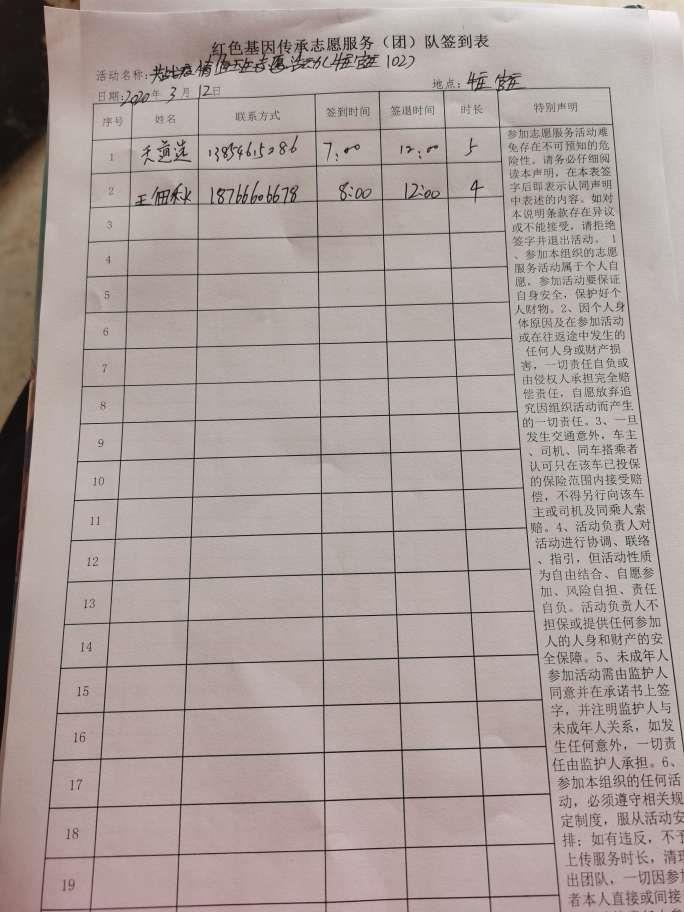 红色基因传承志愿服务（团）队签到表
活动名称：
日期：2020年 3 月 12日
地点：
序号 姓名 联系方式 签到时间 签退时间 时长 特别声明
1 13854615286 7:00 12:00 5
2 王佃秋 18766606678 8:00 12:00 4
3
4
5
6
7
8
9
10
11
12
13
14
15
16
17
18
19
参加志愿服务活动难
免存在不可预知的危
险性。请务必仔细阅
读本声明，在本表签
字后即表示认同声明
中表述的内容。如对
本说明条款存在异议
或不能接受，请拒绝
签字并退出活动。 1
、参加本组织的志愿
服务活动属于个人自
愿。参加活动要保证
自身安全，保护好个
人财物。2、因个人身
体原因及在参加活动
或在往返途中发生的
任何人身或财产损
害，一切责任自负或
由侵权人承担完全赔
偿责任，自愿放弃追
究因组织活动而产生
的一切责任。3、一旦
发生交通意外，车主
、司机、同车搭乘者
认可只在该车已投保
的保险范围内接受赔
偿，不得另行向该车
主或司机及同乘人索
赔。4、活动负责人对
活动进行协调、联络
、指引，但活动性质
为自由结合、自愿参
加、风险自担、责任
自负。活动负责人不
担保或提供任何参加
人的人身和财产的安
全保障。5、未成年人
参加活动需由监护人
同意并在承诺书上签
字，并注明监护人与
未成年人关系，如发
生任何意外，一切责
任由监护人承担。6、
参加本组织的任何活
动，必须遵守相关规
定制度，服从活动安
排；如有违反，不予
上传服务时长，清理
出团队，一切因参加
者本人直接或间接